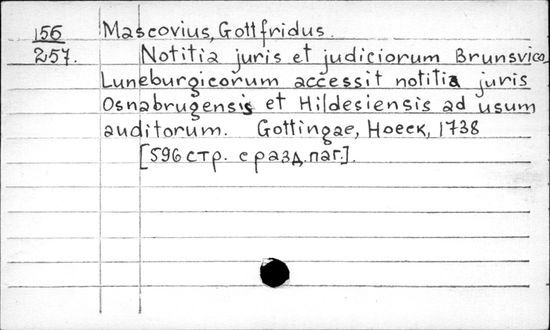 156 Mascovius, Gottfridus.
257. Notitia juris et judiciorum Brunsvico
Luneburgicorum accessit notitia juris
Osnabrugensis et Hildesiensis ad usum
auditorum. Gottingae, Hoeck, 1738
[596 стр. с разд. паг.].